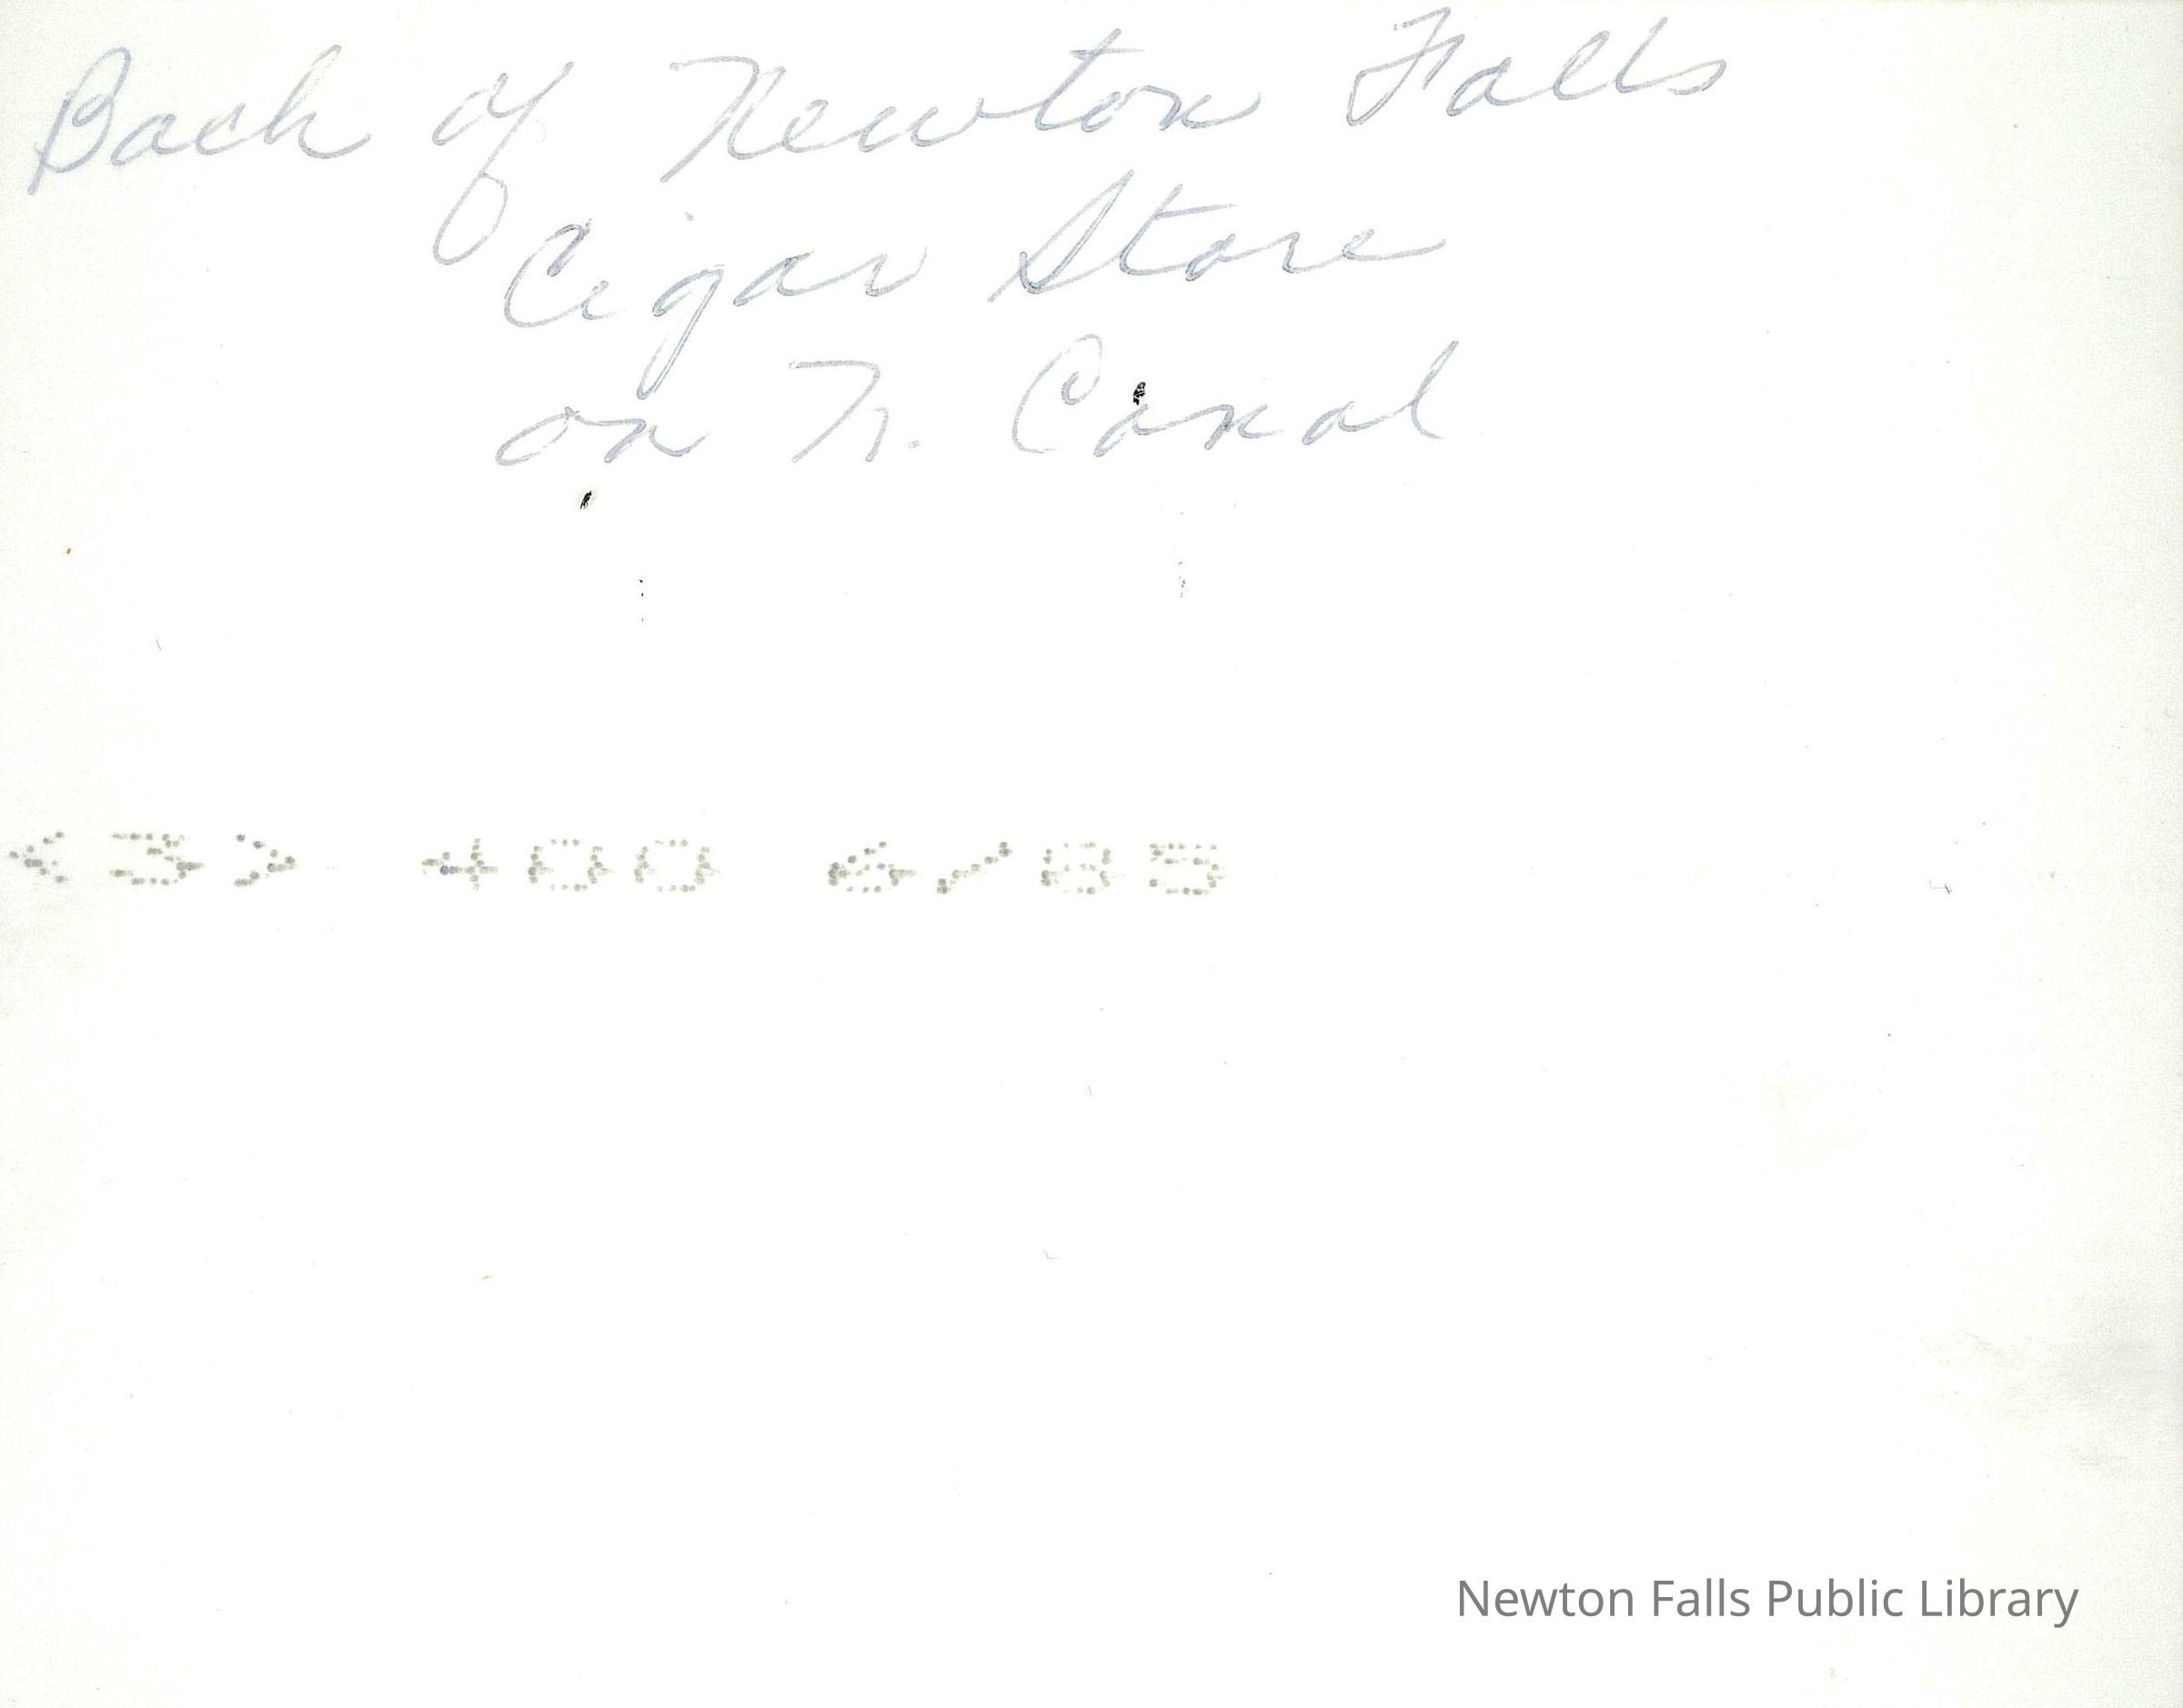 Back of Newton Falls
Cigar Store
on N. Canal
<3> 400 6/85
Newton Falls Public Library